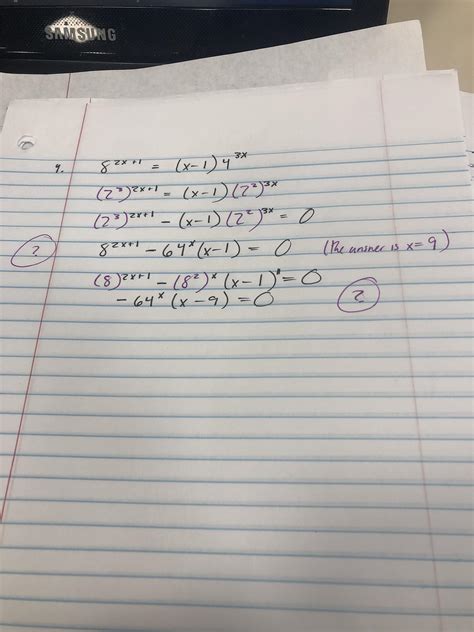 SAMSUNG
4. 8^{2x+1} = (x-1)4^{3x}
(2^3)^{2x+1} = (x-1)(2^2)^{3x}
(2^3)^{2x+1} - (x-1)(2^2)^{3x} = 0
? 8^{2x+1} - 64^x(x-1) = 0 (the answer is x=9)
(8)^{2x+1} - (8^2)^x(x-1) = 0
- 64^x(x-9) = 0 ?